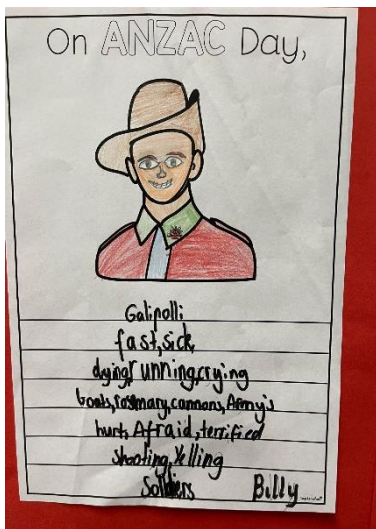 On ANZAC Day,
Galipolli
fast,sick
dying,running,crying
boats,rosmary,cannons,Army's
hurt,Afraid,terrified
shooting,Yelling
Soldiers Billy